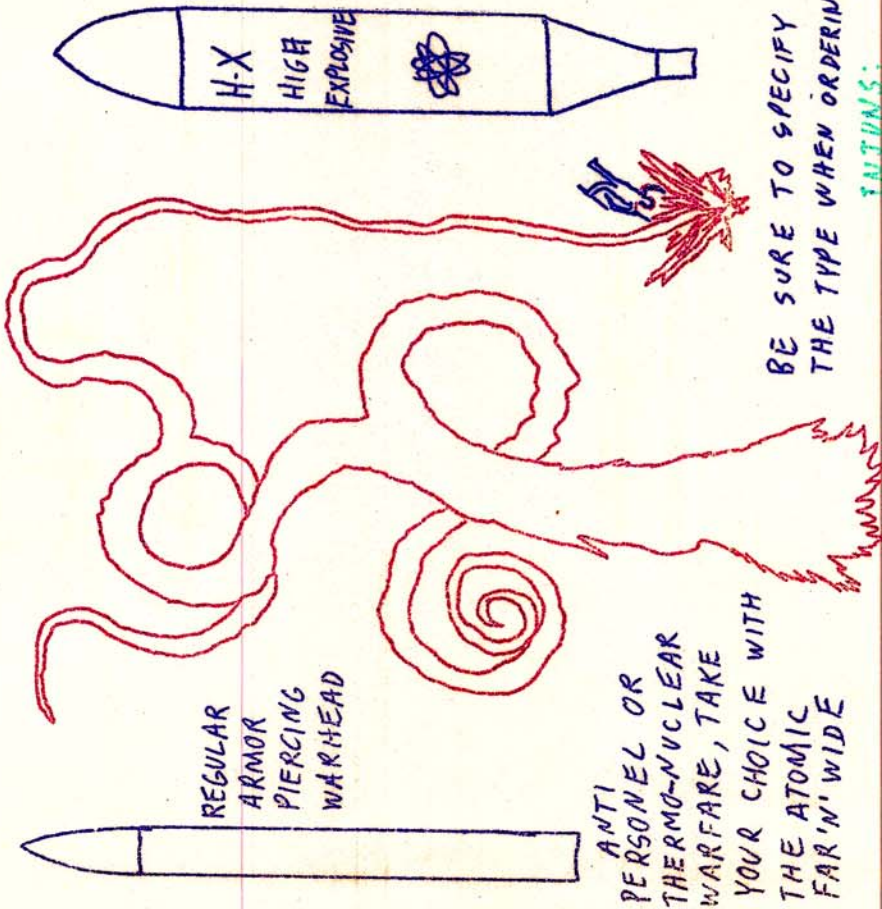 H-X
HIGH
EXPLOSIVE
REGULAR
ARMOR
PIERCING
WARHEAD
ANTI
PERSONEL OR
THERMO-NUCLEAR
WARFARE, TAKE
YOUR CHOICE WITH
THE ATOMIC
FAR'N'WIDE
BE SURE TO SPECIFY
THE TYPE WHEN ORDERIN
INJUNS: